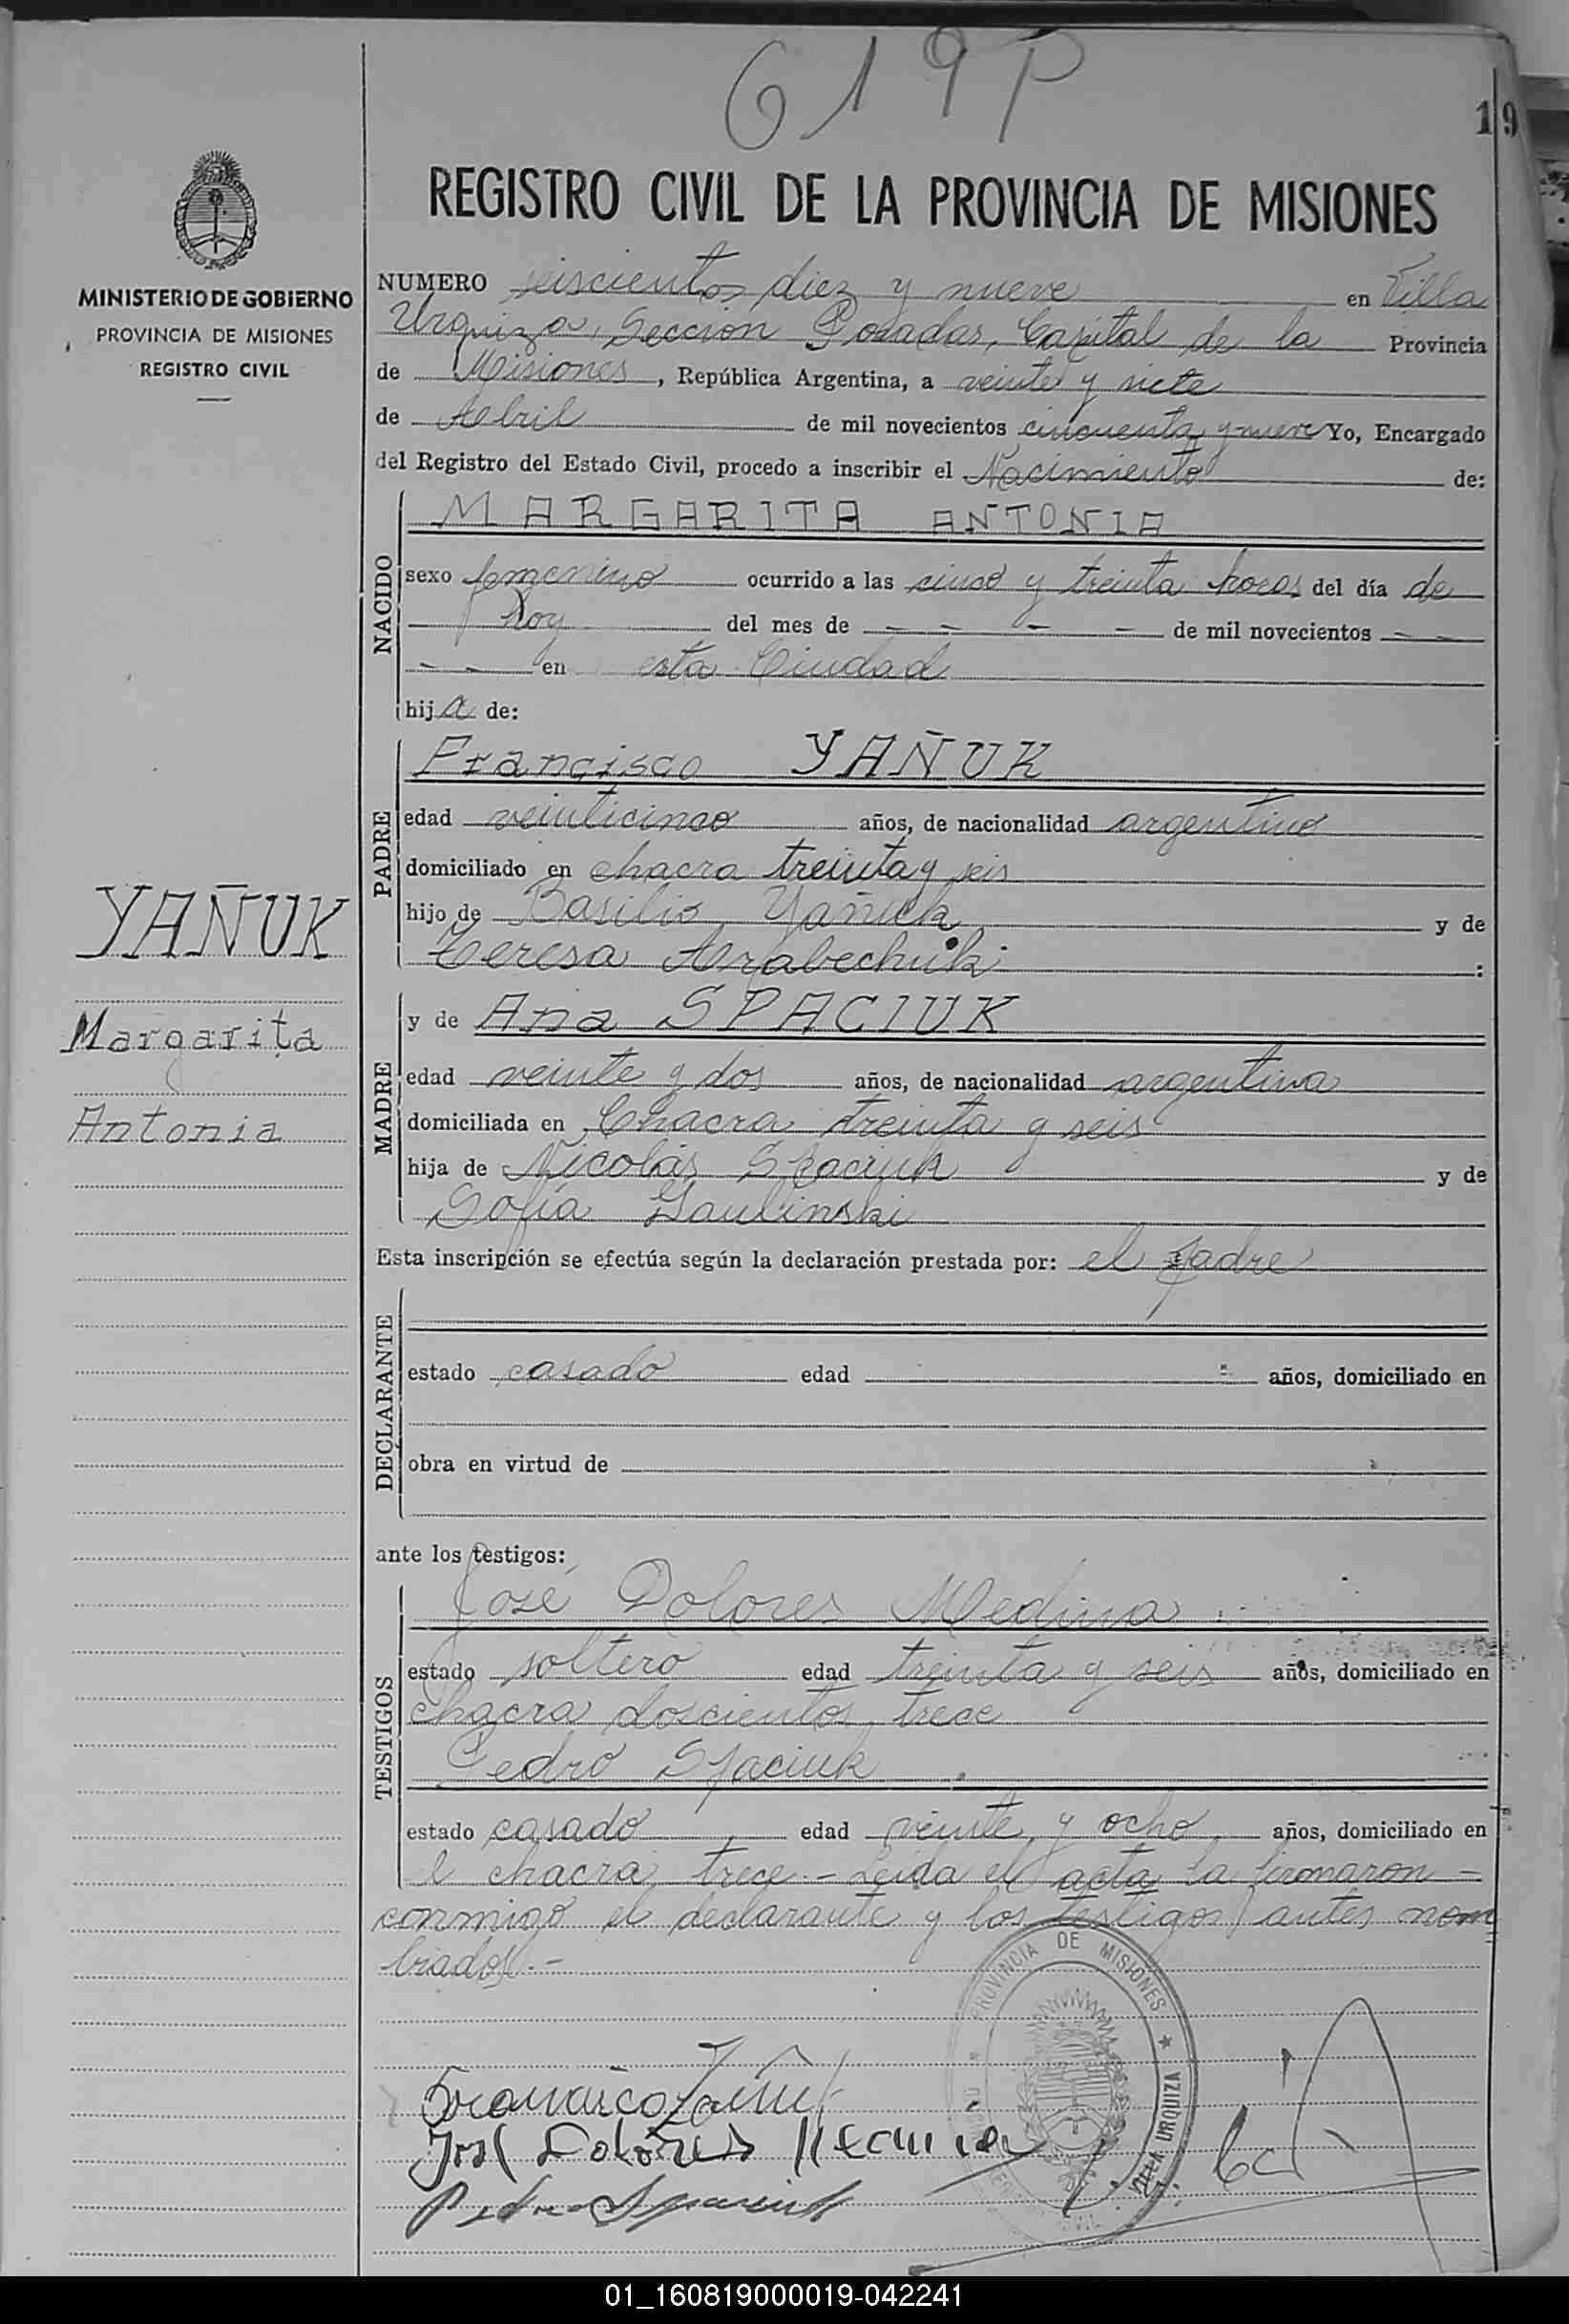 619 P
19
REGISTRO CIVIL DE LA PROVINCIA DE MISIONES
MINISTERIO DE GOBIERNO
PROVINCIA DE MISIONES
REGISTRO CIVIL
NUMERO seiscientos diez y nueve en Villa
Urquiza, Sección Posadas, Capital de la Provincia
de Misiones, República Argentina, a veinte y siete
de Abril de mil novecientos cincuenta y nueve Yo, Encargado
del Registro del Estado Civil, procedo a inscribir el Nacimiento de:
NACIDO
MARGARITA ANTONIA
sexo femenino ocurrido a las cinco y treinta horas del día de
hoy del mes de - - - - de mil novecientos - -
- - en esta Ciudad
hija de:
PADRE
Francisco YAÑUK
edad veinticinco años, de nacionalidad argentino
domiciliado en chacra treinta y seis
hijo de Basilio Yañuk y de
Teresa :
YAÑUK
Margarita
Antonia
MADRE
y de Ana SPACIUK
edad veinte y dos años, de nacionalidad argentina
domiciliada en Chacra treinta y seis
hija de Nicolás Spaciuk y de
Sofía
Esta inscripción se efectúa según la declaración prestada por: el padre
DECLARANTE
estado casado edad años, domiciliado en
obra en virtud de
ante los testigos:
TESTIGOS
José Dolores Medina
estado soltero edad treinta y seis años, domiciliado en
chacra doscientos trece
Pedro Spaciuk
estado casado edad veinte y ocho años, domiciliado en
chacra trece.- Leída el acta la firmaron -
conmigo el declarante y los testigos antes nom
brados.-
PROVINCIA DE MISIONES
VILLA URQUIZA
Francisco Yañuk
José Dolores Medina
Pedro Spaciuk
01_160819000019-042241